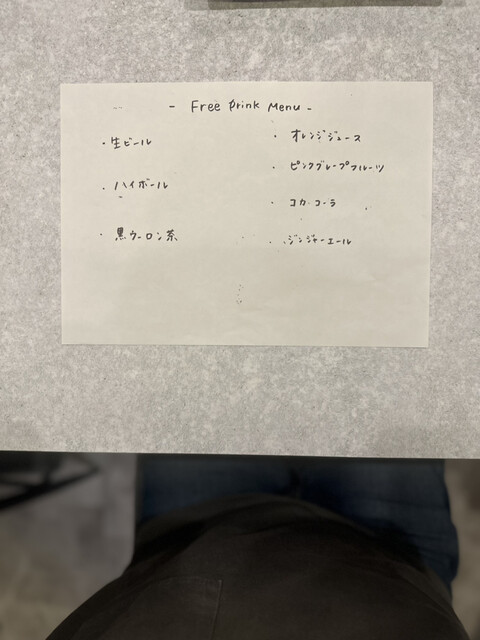 - Free Drink Menu -
・生ビール
・ハイボール
・黒ウーロン茶
・オレンジジュース
・ピンクグレープフルーツ
・コカ・コーラ
・ジンジャーエール